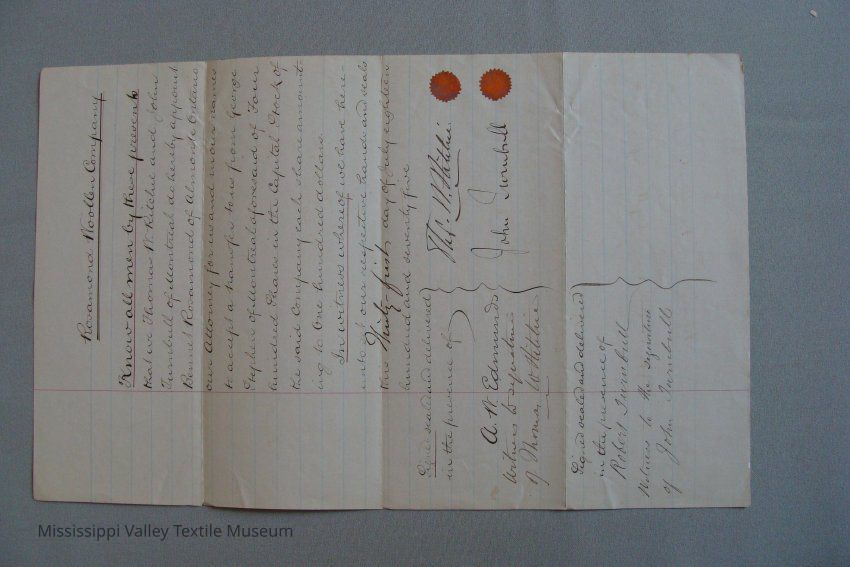 Rosamond Woollen Company
Know all men by these presents
that we Thomas W. Ritchie and John
Turnbull of Montreal do hereby appoint
Bennet Rosamond of Almonte Ontario
our Attorney for us and in our names
to accept a transfer to us from George
Stephen of Montreal aforesaid of Four
hundred Shares in the Capital Stock of
the said Company each share amount-
ing to One hundred dollars.
In witness whereof we have here-
unto our respective hands and seals
this Thirty-first day of July eighteen
hundred and seventy five
Signed sealed and delivered
in the presence of
Thos. W. Ritchie
A. W. Edmunds
Witness to signature
of Thomas W Ritchie
John Turnbull
Signed sealed and delivered
in the presence of
Robert Turnbull
Witness to the signature
of John Turnbull
Mississippi Valley Textile Museum